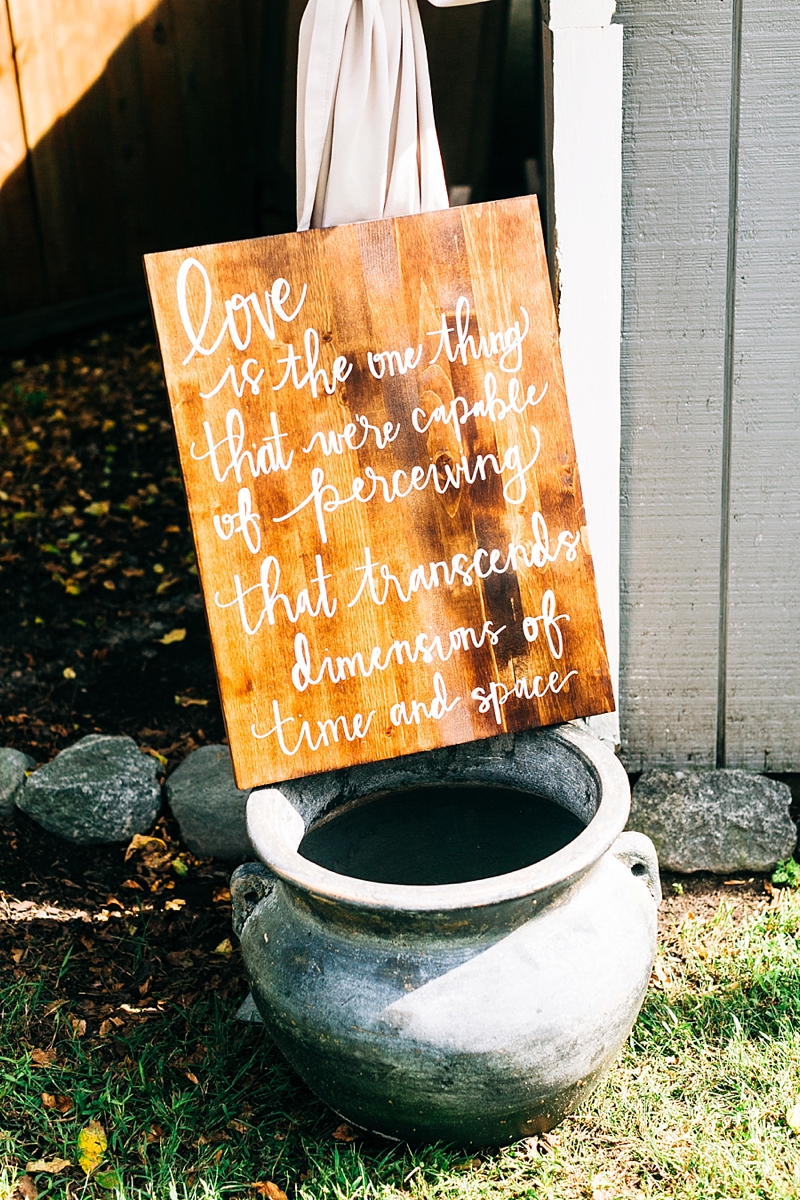 love
is the one thing
that we're capable
of perceiving
that transcends
dimensions of
time and space